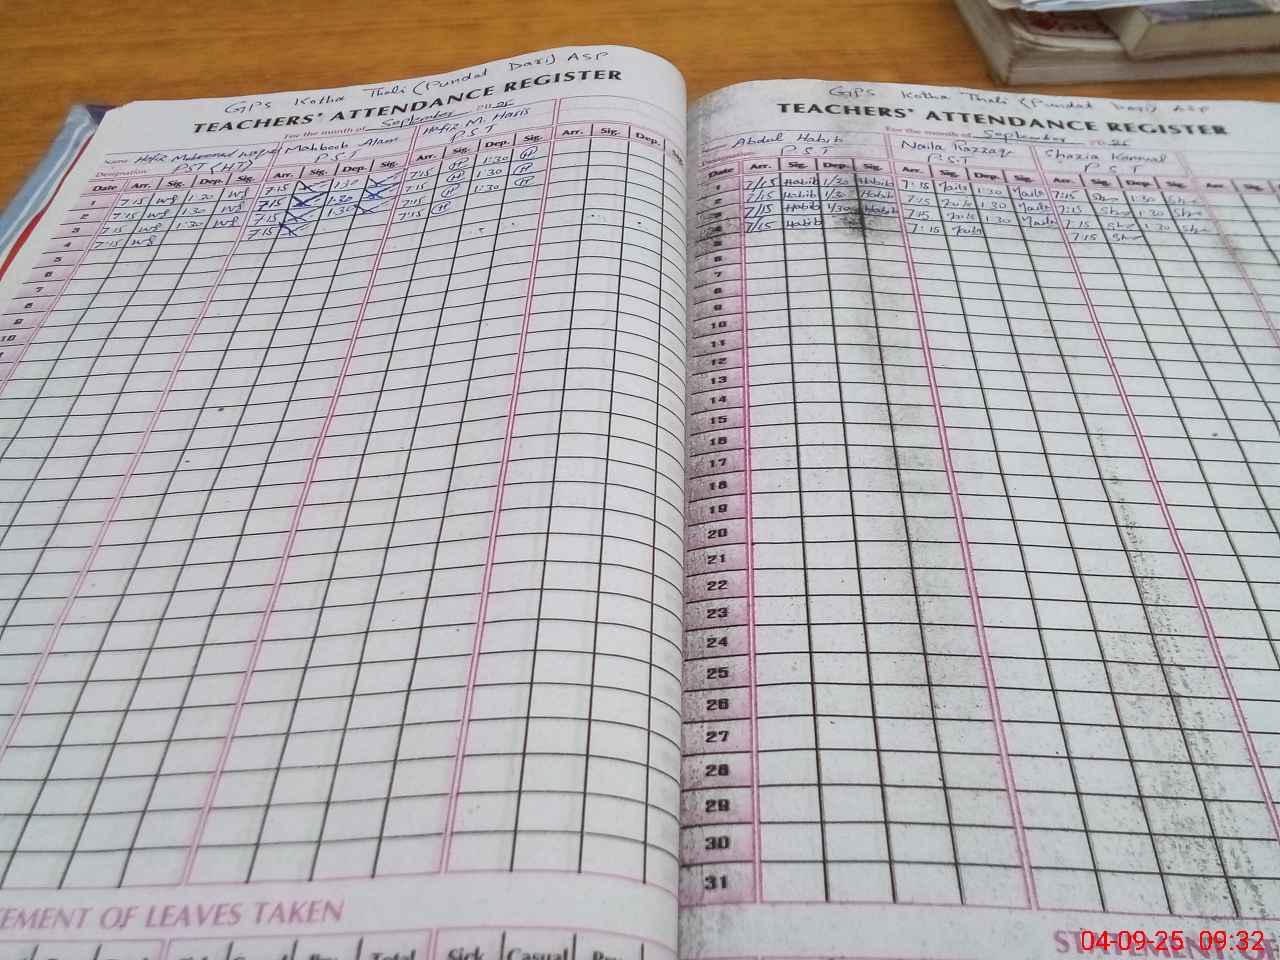 GPS Kotha Thali (Pundat Dari) ASP
TEACHERS' ATTENDANCE REGISTER
For the month of September 20 25
Name Hafiz Muhammad Mahboob Alam Hafiz M. Haris
Designation PST (HT) P.S.T P.S.T
Date Arr. Sig. Dep. Sig. Arr. Sig. Dep. Sig. Arr. Sig. Dep. Sig. Arr. Sig. Dep. Sig.
1 7:15 1:30 7:15 1:30 7:15 H 1:30 H
2 7:15 1:30 7:15 1:30 7:15 H 1:30 H
3 7:15 1:30 7:15 1:30 7:15 H 1:30 H
4 7:15 7:15 7:15 H
5
6
7
8
9
10
STATEMENT OF LEAVES TAKEN
Total Sick Casual
GPS Kotha Thali (Pundat Dari) ASP
TEACHERS' ATTENDANCE REGISTER
For the month of September 20 25
Abdul Habib Naila Razzaq Shazia Kanwal
P.S.T P.S.T P.S.T
Date Arr. Sig. Dep. Sig. Arr. Sig. Dep. Sig. Arr. Sig. Dep. Sig. Arr. Sig.
1 7/15 Habib 1/30 Habib 7:15 Naila 1:30 Naila 7:15 Shaz 1:30 Shaz
2 7/15 Habib 1/30 Habib 7:15 Naila 1:30 Naila 7:15 Shaz 1:30 Shaz
3 7/15 Habib 1/30 Habib 7:15 Naila 1:30 Naila 7:15 Shaz 1:30 Shaz
4 7/15 Habib 7:15 Naila 7:15 Shaz
5
6
7
8
9
10
11
12
13
14
15
16
17
18
19
20
21
22
23
24
25
26
27
28
29
30
31
STATEMENT OF
04-09-25 09:32